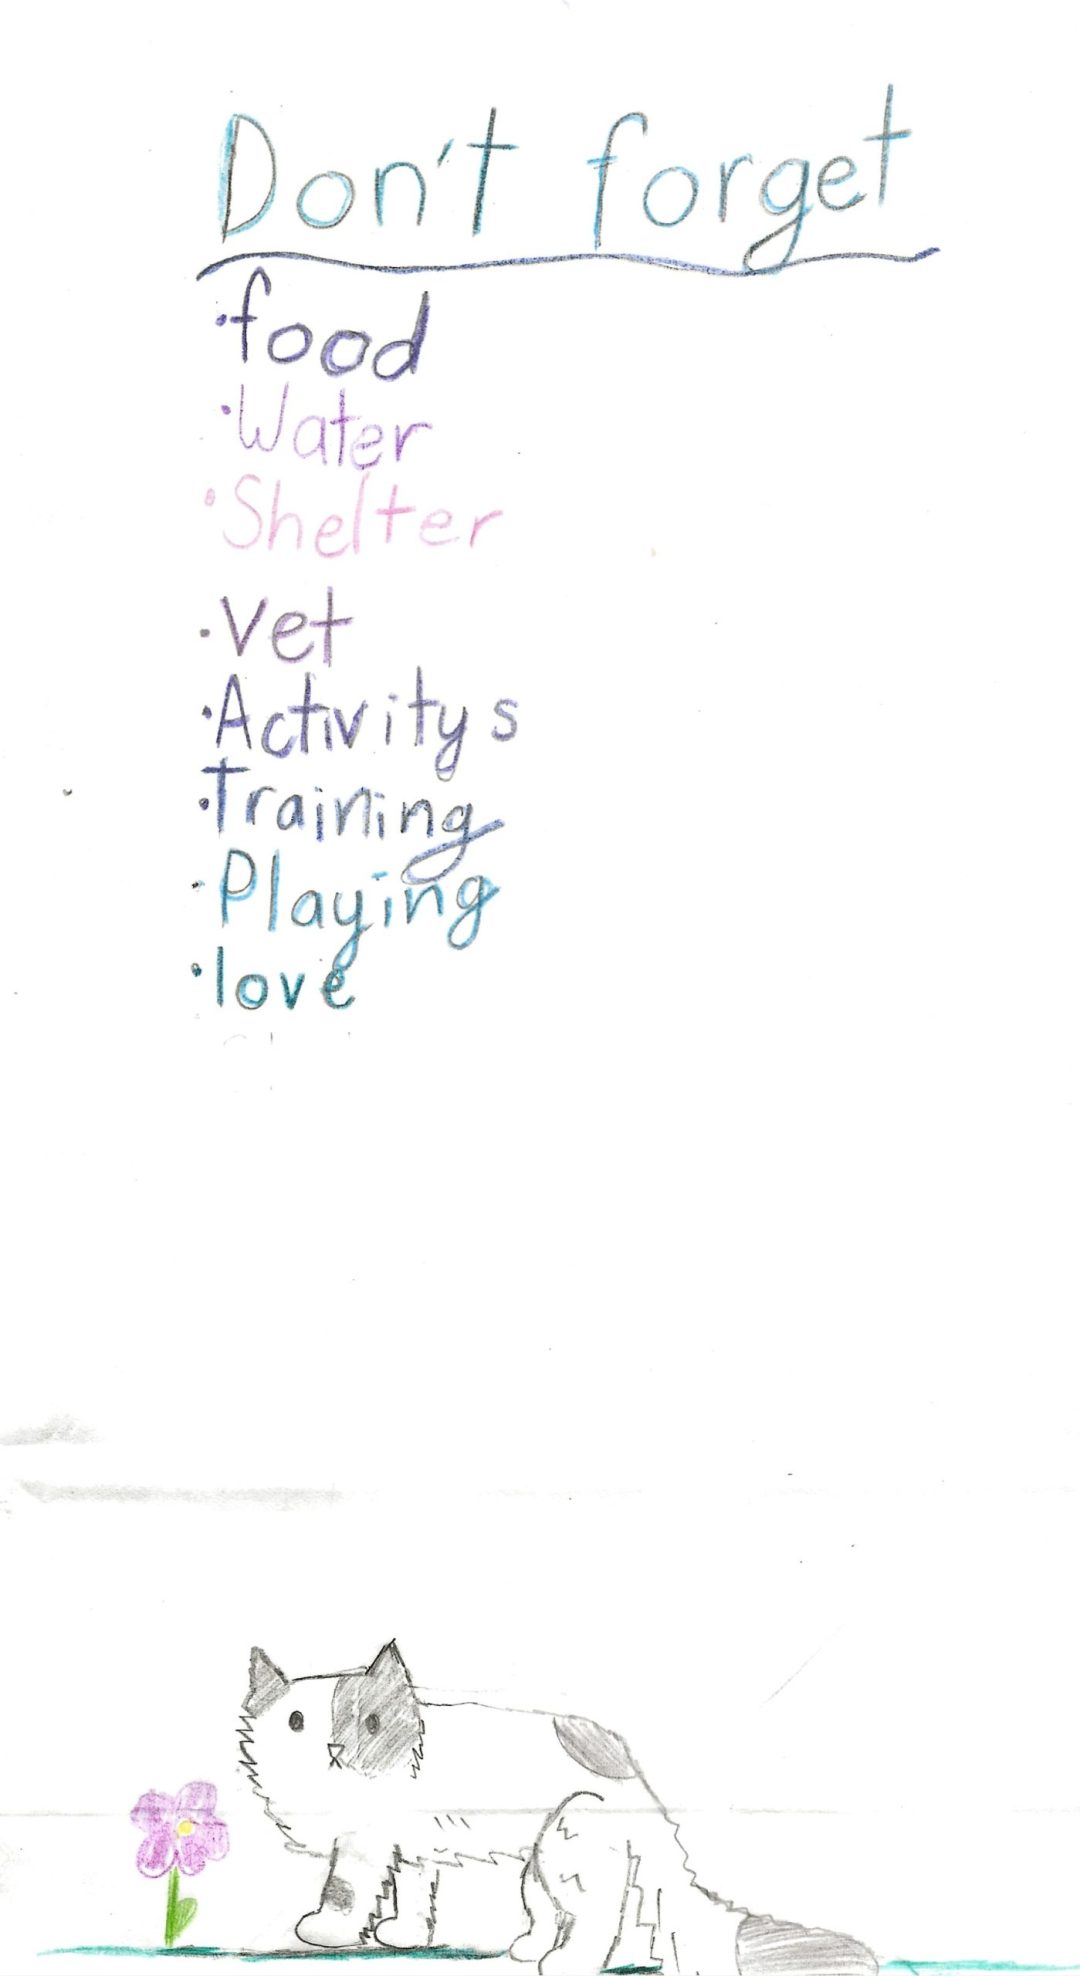 Don't forget
·food
·Water
·Shelter
·vet
·Activitys
·Training
·Playing
·love